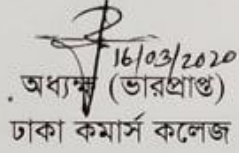 16/03/2020
অধ্যক্ষ (ভারপ্রাপ্ত)
ঢাকা কমার্স কলেজ